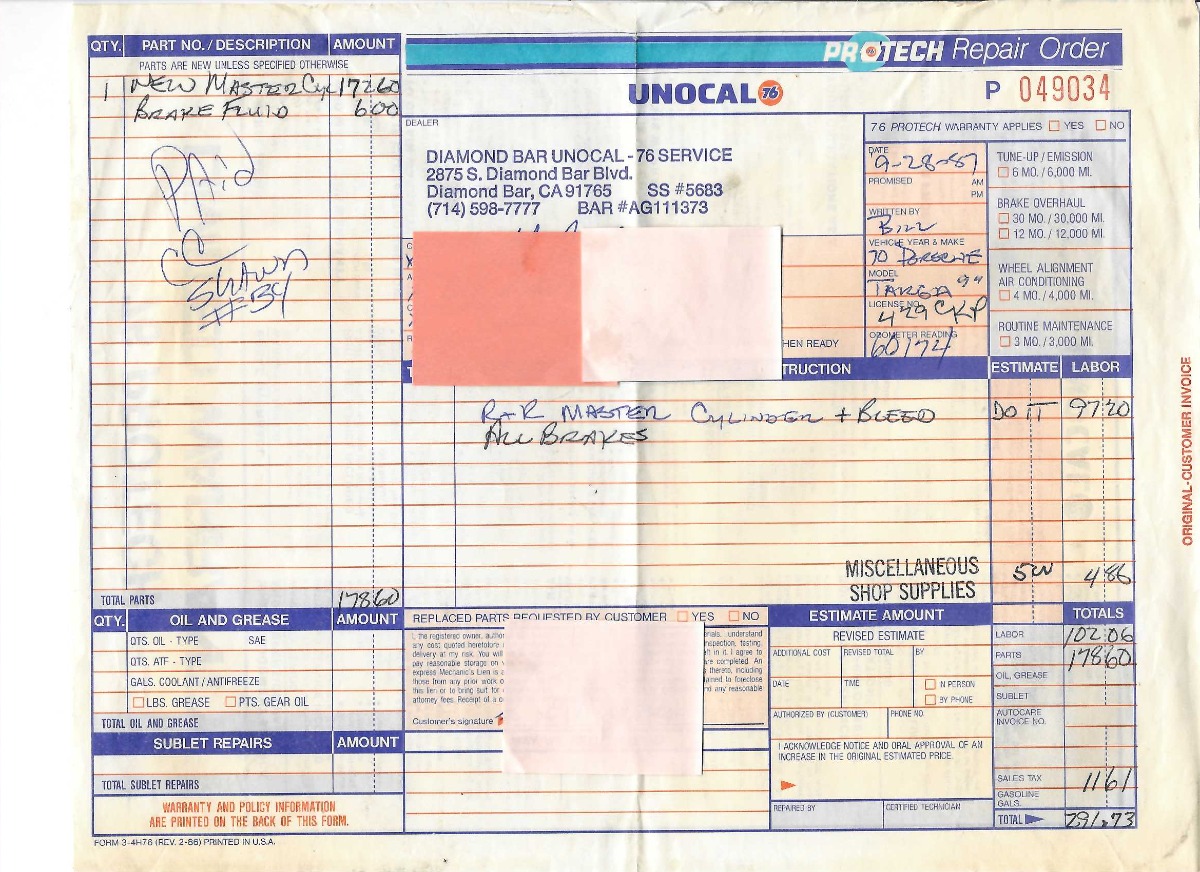 PROTECH Repair Order
UNOCAL 76
P 049034
QTY. PART NO./DESCRIPTION AMOUNT
PARTS ARE NEW UNLESS SPECIFIED OTHERWISE
1 NEW MASTER CYL 172 60
BRAKE FLUID 6 00
PAID
CC
SHAWN
#34
TOTAL PARTS 178 60
DEALER
DIAMOND BAR UNOCAL - 76 SERVICE
2875 S. Diamond Bar Blvd.
Diamond Bar, CA 91765 SS #5683
(714) 598-7777 BAR #AG111373
76 PROTECH WARRANTY APPLIES YES NO
DATE
9-28-87
PROMISED AM
PM
WRITTEN BY
BILL
VEHICLE YEAR & MAKE
70 PORSCHE
MODEL
TARGA 911
LICENSE NO.
429 CKP
ODOMETER READING
60174
TUNE-UP / EMISSION
6 MO. / 6,000 MI.
BRAKE OVERHAUL
30 MO. / 30,000 MI.
12 MO. / 12,000 MI.
WHEEL ALIGNMENT
AIR CONDITIONING
4 MO. / 4,000 MI.
ROUTINE MAINTENANCE
3 MO. / 3,000 MI.
HEN READY
TRUCTION ESTIMATE LABOR
R+R MASTER CYLINDER + BLEED DO IT 97 20
ALL BRAKES
MISCELLANEOUS
SHOP SUPPLIES 4 86
QTY. OIL AND GREASE AMOUNT
QTS. OIL - TYPE SAE
QTS. ATF - TYPE
GALS. COOLANT / ANTIFREEZE
LBS. GREASE PTS. GEAR OIL
TOTAL OIL AND GREASE
SUBLET REPAIRS AMOUNT
TOTAL SUBLET REPAIRS
WARRANTY AND POLICY INFORMATION
ARE PRINTED ON THE BACK OF THIS FORM.
FORM 3-4H76 (REV. 2-86) PRINTED IN U.S.A.
REPLACED PARTS REQUESTED BY CUSTOMER YES NO
I, the registered owner, author
any cost quoted heretofore
delivery at my risk. You will
pay reasonable storage on
express Mechanic's Lien is
those from any prior work
this lien or to bring suit for
attorney fees. Receipt of a
erials. understand
inspection, testing,
ft in it. I agree to
are completed. An
thereto, including
aimed to foreclose
nd any reasonable
Customer's signature
ESTIMATE AMOUNT
REVISED ESTIMATE
ADDITIONAL COST REVISED TOTAL BY
DATE TIME IN PERSON
BY PHONE
AUTHORIZED BY (CUSTOMER) PHONE NO.
I ACKNOWLEDGE NOTICE AND ORAL APPROVAL OF AN
INCREASE IN THE ORIGINAL ESTIMATED PRICE.
REPAIRED BY CERTIFIED TECHNICIAN
TOTALS
LABOR 102.06
PARTS 178 60
OIL, GREASE
SUBLET
AUTOCARE
INVOICE NO.
SALES TAX 11 61
GASOLINE
GALS.
TOTAL 291.73
ORIGINAL-CUSTOMER INVOICE